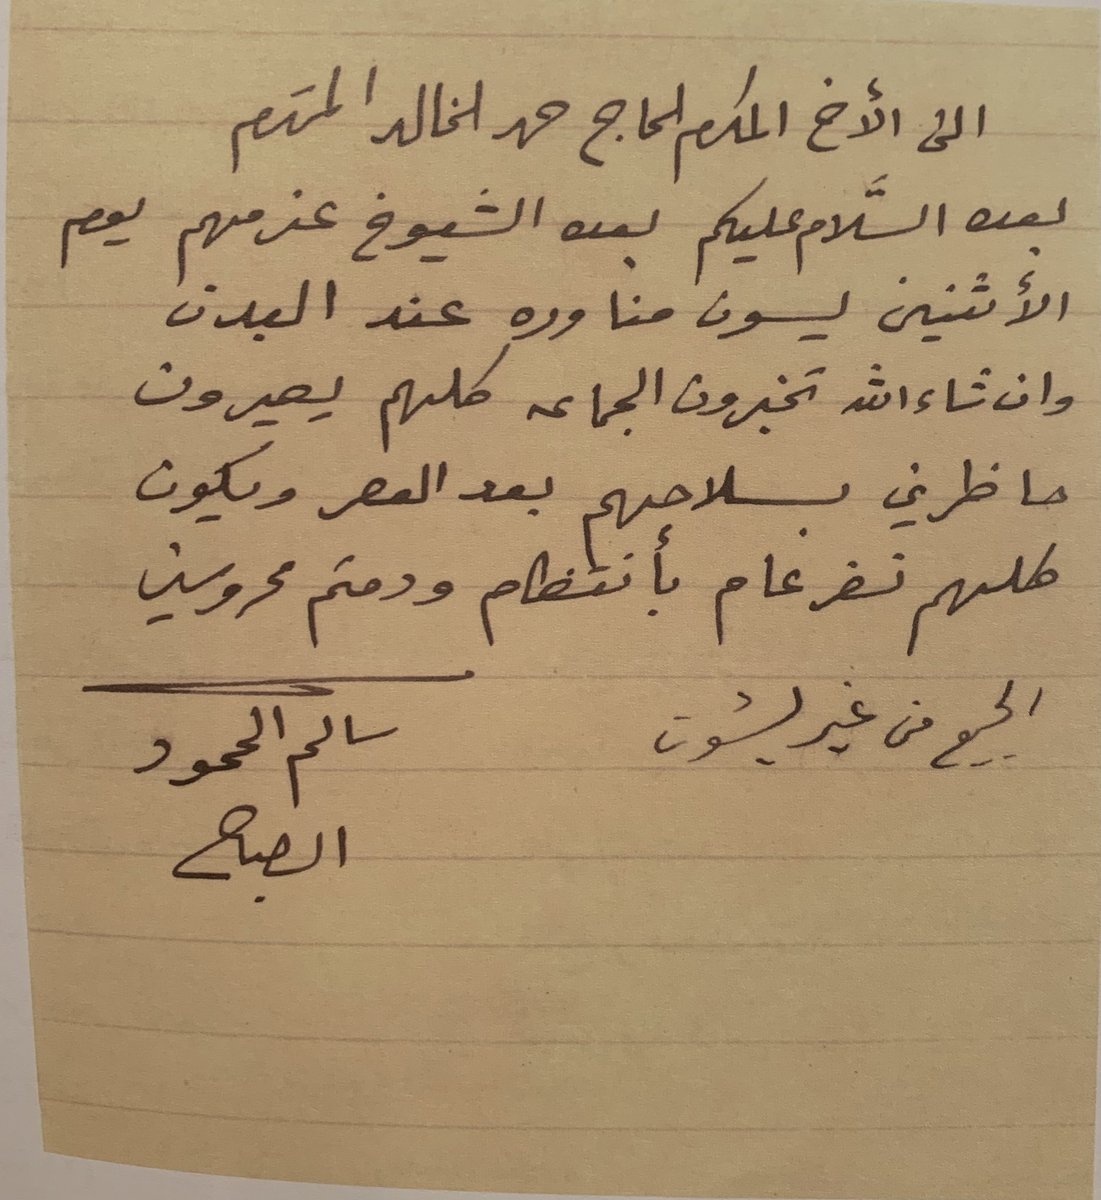 الى الأخ المكرم الحاج حمد الخالد المحترم
بعده السَّلام عليكم بعده الشيوخ عزمهم يوم
الأثنين يسون مناوره عند البدن
وان شاء الله تخبرون الجماعه كلهم يصيرون
حاظرين بسلاحهم بعد العصر ويكون
كلهم نفر عام بأنتظام ودمتم محروسين
الجميع من غير بشوت
سالم الحمود
الصباح